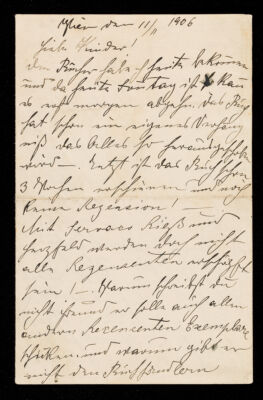 Wien den 11/11 1906
Liebe Kinder!
Die Bücher habe ich heute bekommen
und da heute Sonntag ist kann
es erst morgen abgehn. Das Buch
hat schon ein eigenes Verhäng
niß das Alles so
wird — Jetzt ist das Buch schon
3 Wochen erschienen und noch
keine Regension! —
Mit Servaes Rieß und
Herzfeld werden doch nicht
alle Regensenten erschöpft
sein! — Warum schreibst du
nicht Freund er solle auch allen
andern Recensenten Exemplare
schicken. und warum gibt er
nicht den Buchhändlern